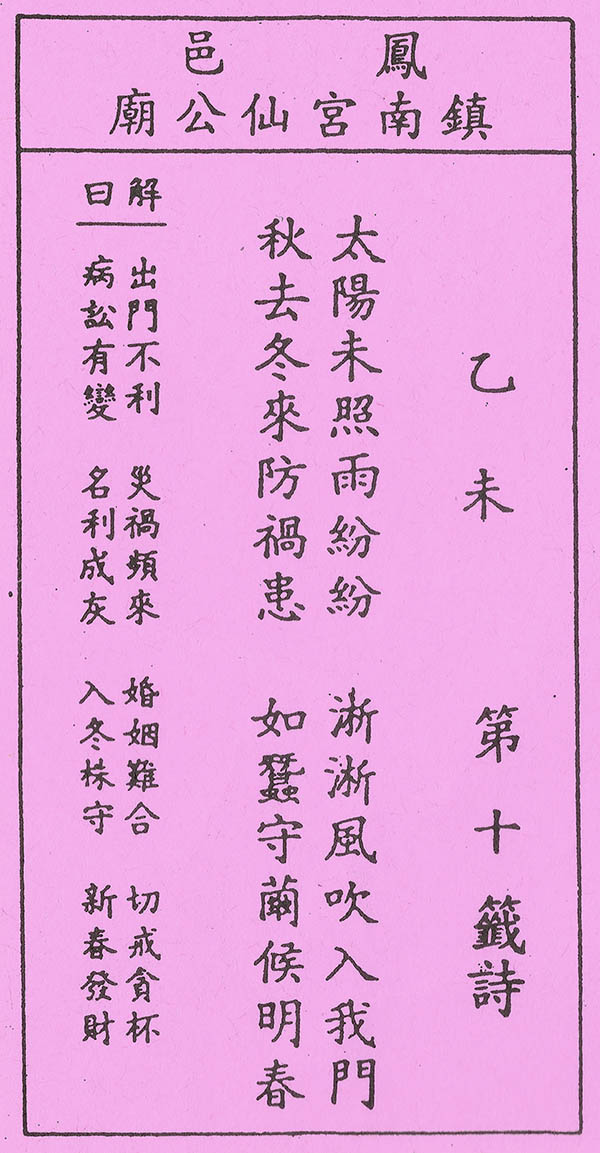 鳳邑
鎮南宮仙公廟
乙未 第十籤詩
太陽未照雨紛紛 淅淅風吹入我門
秋去冬來防禍患 如蠶守繭候明春
解曰
出門不利 災禍頻來 婚姻難合 切戒貪杯
病訟有變 名利成灰 入冬株守 新春發財